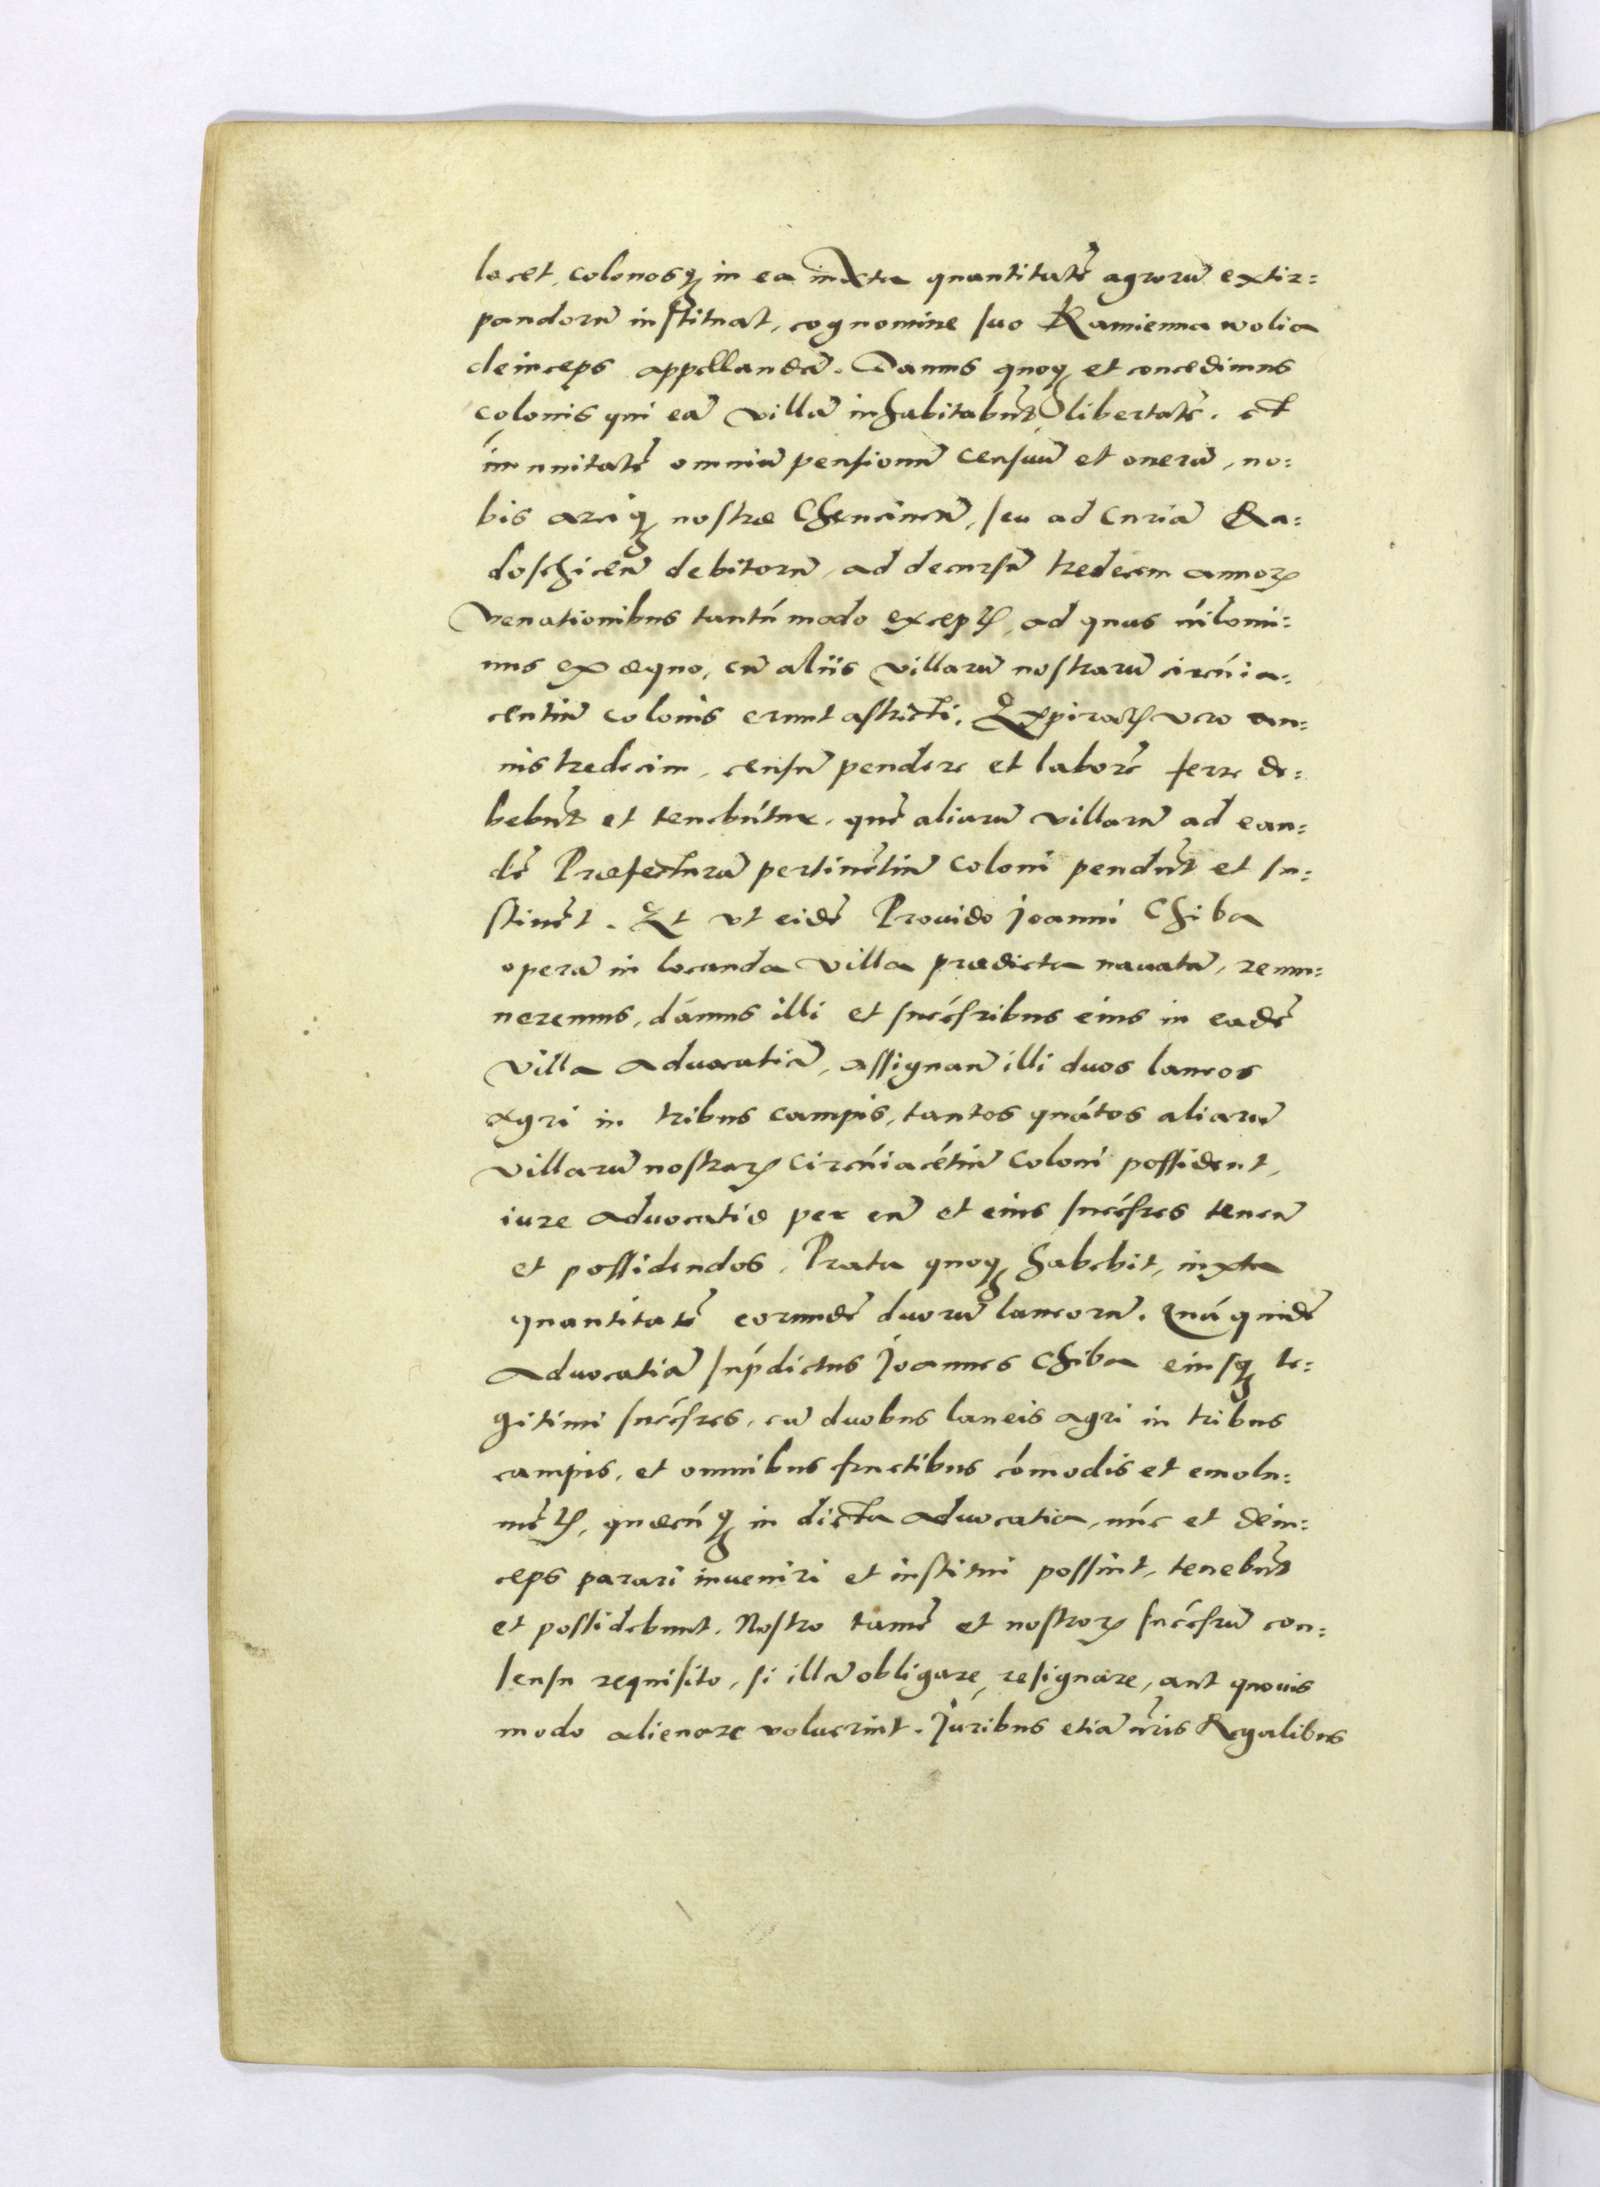 locet, colonosq̃ in ea iuxta quantitatē agrorū extir:
pandorū instituat, cognomine suo Kamienna wolia
deinceps appellandā. Damus quoq̃ et concedimus
colonis qui eā villā inhabitabūt, libertatē. et
imunitatē omniū pensionū censuū et onerū, no:
bis arciq̃ nostræ Chencineñ, seu ad Curiā Ra:
doschiceñ debitorū, ad decursū tredecim annoꝝ
venationibus tantū modo exceptꝭ, ad quas nilomi:
nus ex æquo, cū aliis villarū nostrarū circūia:
centiū colonis erunt astricti. Expiratꝭ vero an:
nis tredecim, censū pendere et laborē ferre de:
bebūt et tenebūtur, quē aliarū villarū ad ean:
dē Præfecturā pertinētiū coloni pendūt et su:
stinēt. Et vt eidē Prouido Joanni Chiba
operā in locanda villa prædicta nauatā, remu:
neremus, damus illi et succēsribus eius in eadē
villa aduocatiā, assignañ illi duos laneos
agri in tribus campis, tantos quātos aliarū
villarū nostraꝝ circūiacētiū coloni possident,
iure aduocatiæ per eū et eius succēsres teneñ
et possidendos. Prata quoq̃ habebit, iuxta
quantitatē eorundē duorū laneorū. Quā quidē
aduocatiā sup̄dictus Joannes Chiba eiusq̃ le:
gitimi succēsres, cū duobus laneis agri in tribus
campis, et omnibus fructibus cōmodis et emolu:
mētꝭ, quæcūq̃ in dicta aduocatia, nūc et dein:
ceps parari inueniri et institui possint, tenebūt
et possidebunt. Nostro tamē et nostroꝝ succēsrū con:
sensu requisito, si illā obligare, resignare, aut quouis
modo alienare voluerint. Juribus etiā nr̄is Regalibus